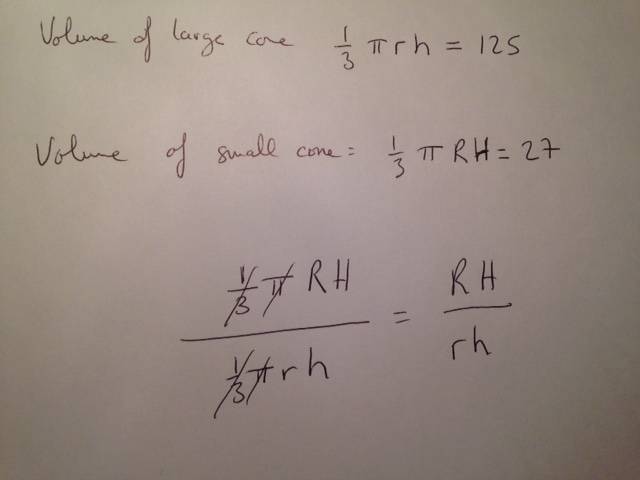 Volume of large cone 1/3 π r h = 125
Volume of small cone = 1/3 π R H = 27
(1/3 π R H) / (1/3 π r h) = RH / rh